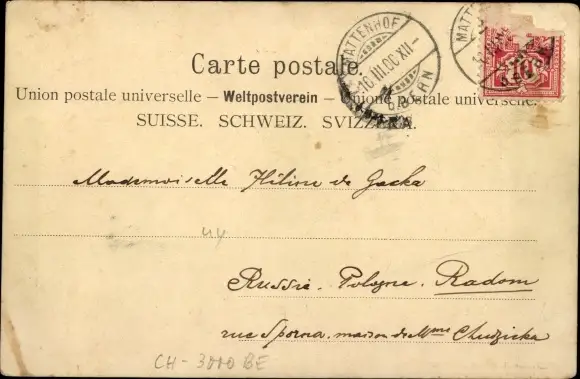 Carte postale.
Union postale universelle — Weltpostverein — Unione postale universelle.
SUISSE. SCHWEIZ. SVIZZERA.
MATTENHOF
16.III.00.XII-
BERN
MATT
10
Mademoiselle Hélène de Gacka
44
Russie. Pologne. Radom
rue Sporna, maison de Mme Chudzicka
CH-3000 BE